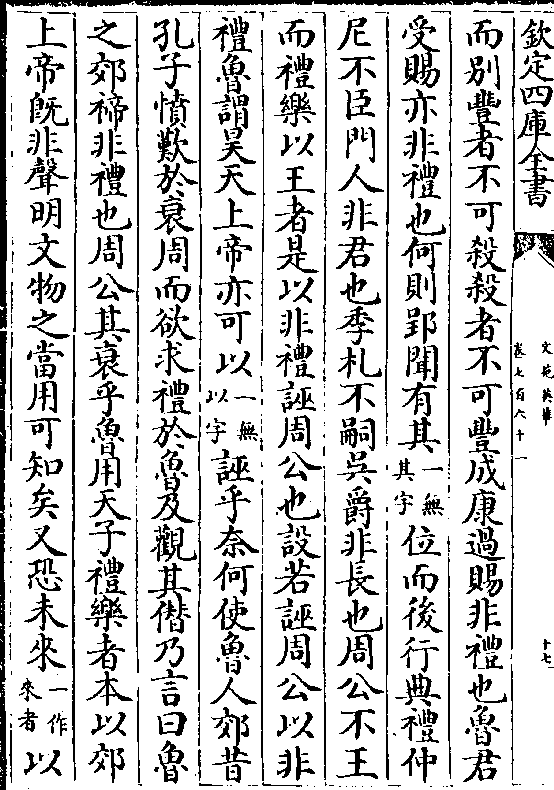 欽定四庫全書
文苑英華
卷七百六十一
十七
而別豐者不可殺殺者不可豐成康過賜非禮也魯君
受賜亦非禮也何則郢聞有其一無其字位而後行典禮仲
尼不臣門人非君也季札不嗣吳爵非長也周公不王
而禮樂以王者是以非禮誣周公也設若誣周公以非
禮魯謂昊天上帝亦可以一無以字誣乎奈何使魯人郊昔
孔子憤歎於衰周而欲求禮於魯及觀其僭乃言曰魯
之郊禘非禮也周公其衰乎魯用天子禮樂者本以郊
上帝既非聲明文物之當用可知矣又恐未來一作來者以